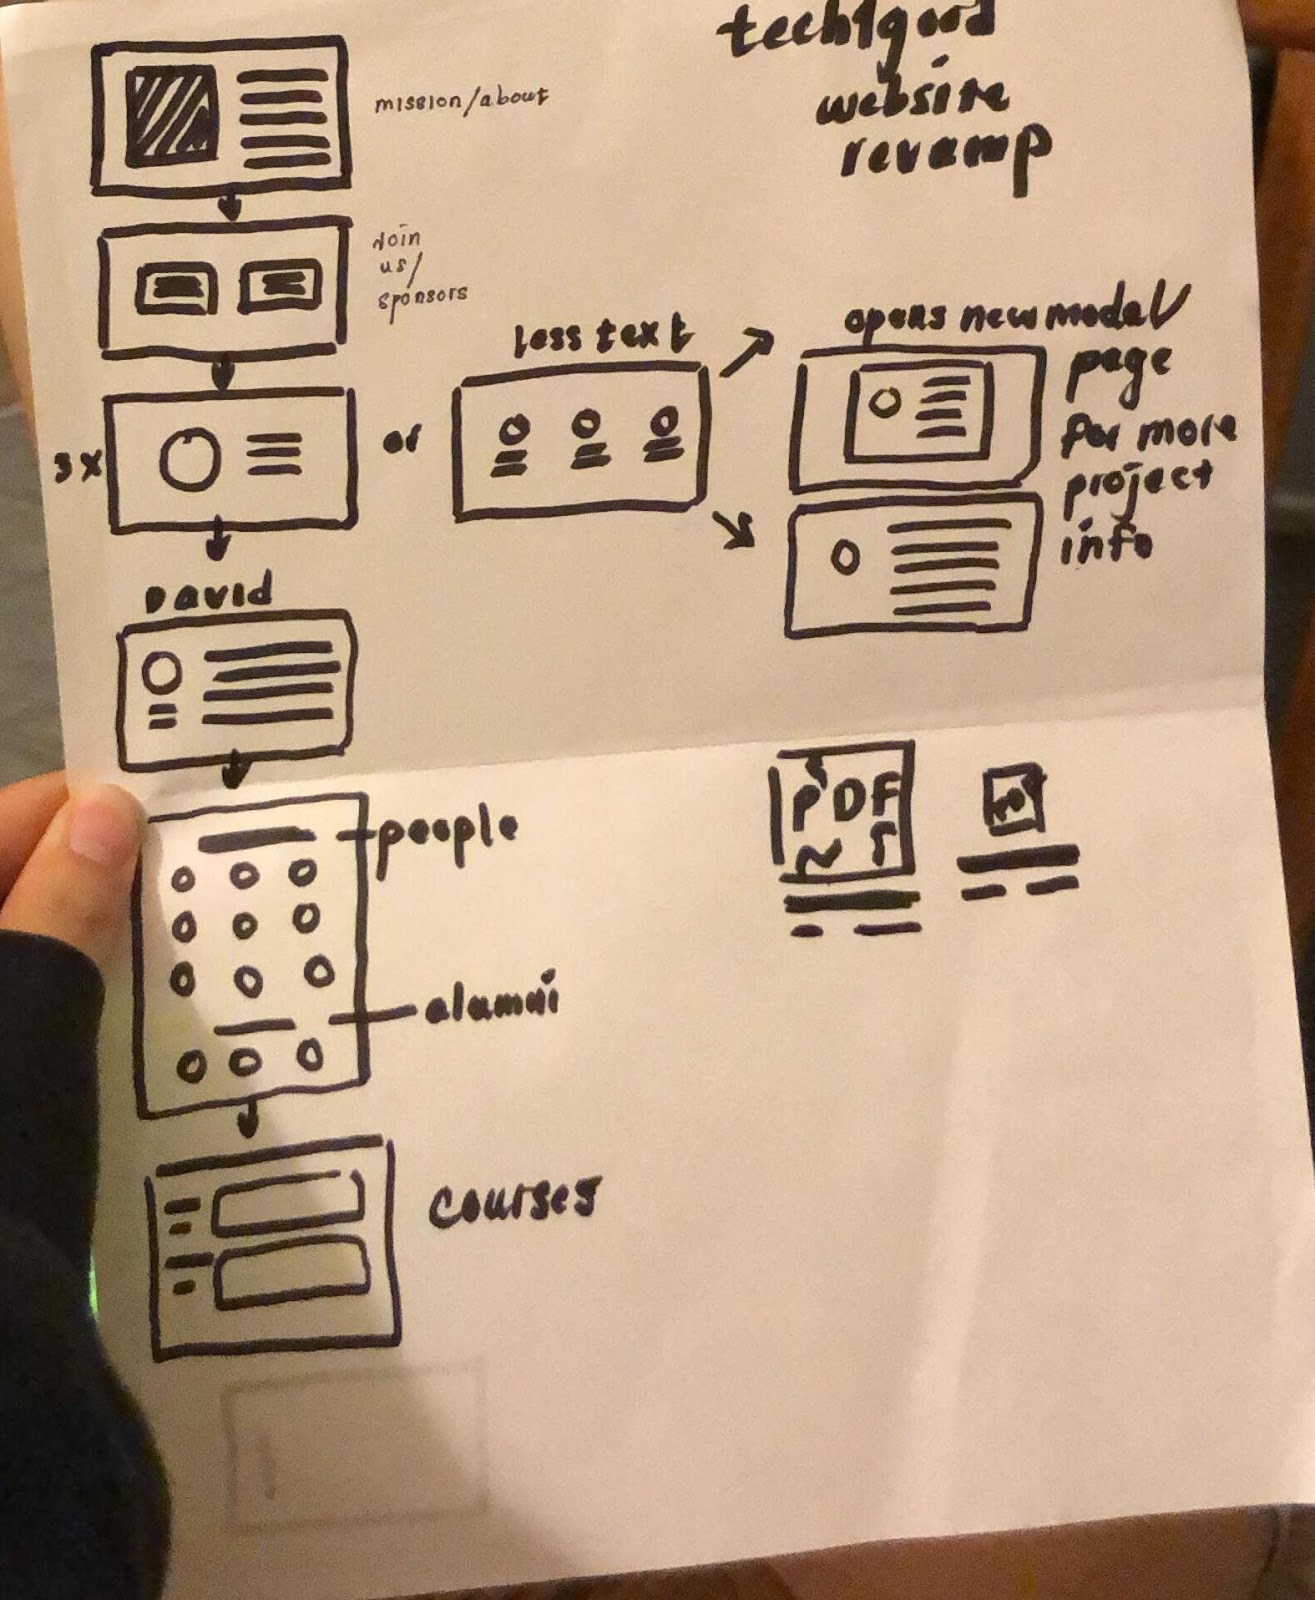 tech4good
website
revamp
mission/about
Join
us/
sponsors
3x
or
less text
opens new modal/
page
for more
project
info
David
people
alumni
PDF
courses